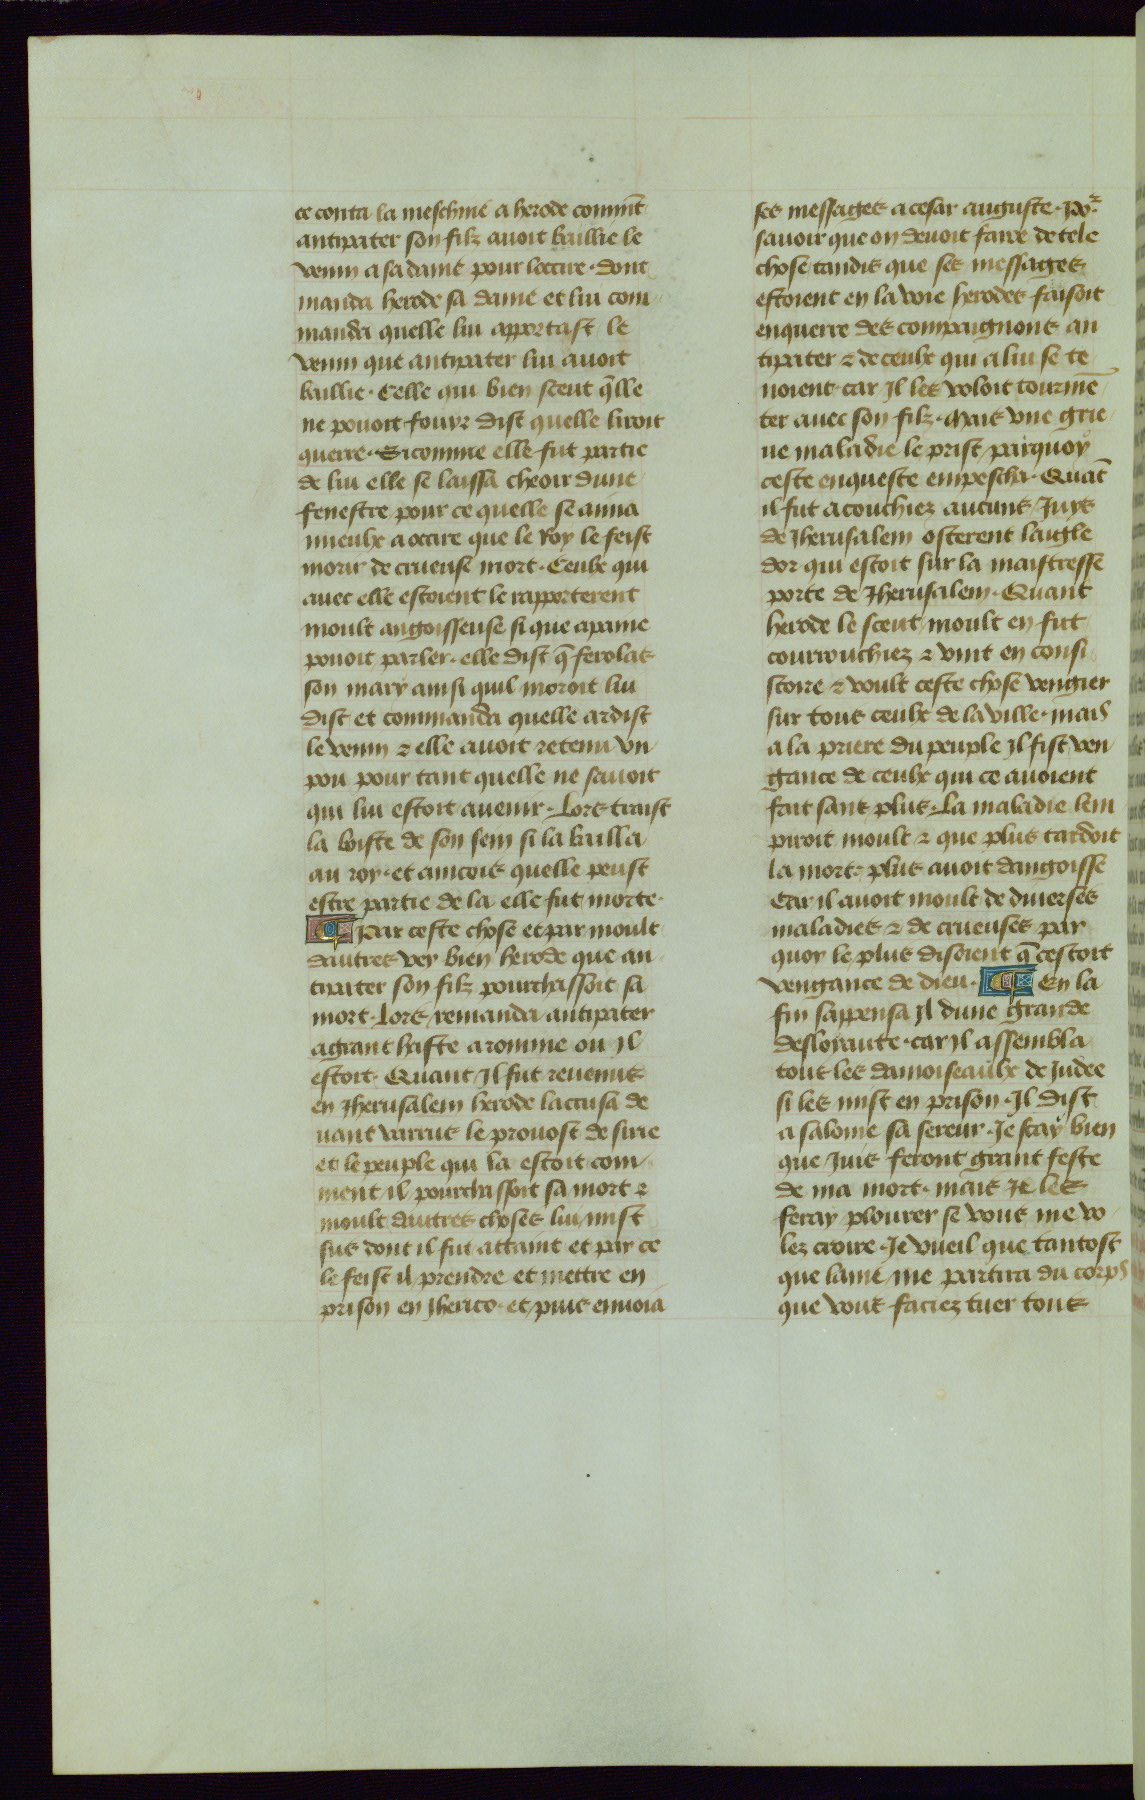 ce conta la meschine a herode comment
antipater son filz auoit baillie le
venin a sa dame pour loccire · dont
manda herode sa dame et lui com
manda quelle lui apportast le
venin que antipater lui auoit
baillie · Celle qui bien sceut q̄lle
ne pouoit fouyr dist quelle liroit
querre · Si comme elle fut partie
de lui elle se laissa cheoir dune
fenestre pour ce quelle se ama
mieulx a occire que le Roy le feist
morir de crueuse mort · Ceulx qui
auec elle estoient le rapporterent
moult angoisseuse si que a paine
pouoit parler · elle dist q̄ ferolas
son mary ainsi quil moroit lui
dist et commanda quelle ardist
le venin ⁊ elle auoit retenu vn
pou pour tant quelle ne sauoit
qui lui estoit auenir · Lors traist
la boiste de son sein si la bailla
au roy · et aincois quelle peust
estre partie de la elle fut morte ·
Par ceste chose et par moult
dautres vey bien herode que an
tipater son filz pourchassoit sa
mort · Lors remanda antipater
a grant haste a romme ou il
estoit · Quant Il fut reuenus
en Jherusalem herode laccusa de
uant varrus le prouost de sirie
et le peuple qui la estoit com
ment il pourchassoit sa mort ⁊
moult dautres choses lui mist
sus dont il fut attaint et par ce
le feist il prendre et mettre en
prison en Jherico · et puis enuoia
ses messages a cesar auguste · Por
sauoir que on deuoit faire de tele
chose tandis que ses messages
estoient en la voie herodes faisoit
enquerre des compaignons an
tipater ⁊ de ceulx qui a lui se te
noient · car Il les voloit tourmē
ter auec son filz · Mais vne grie
ue maladie le prist / parquoy
ceste enqueste empescha · Quāt
il fut acouchiez aucuns Juys
de Jherusalem osterent laigle
dor qui estoit sur la maistresse
porte de Jherusalem · Quant
herode le sceut / moult en fut
courrouchiez ⁊ vint en consi
stoire ⁊ voult ceste chose vengier
sur tous ceulx de la ville · mais
a la priere du peuple Il fist ven
gance de ceulx qui ce auoient
fait sans plus · La maladie lem
piroit moult ⁊ que plus tardoit
la mort · plus auoit dangoisse
Car il auoit moult de diuerses
maladies ⁊ de crueuses par
quoy le plus disoient q̄ cestoit
vengance de dieu · En la
fin sappensa Il dune grande
desloyaute · car Il assembla
tous les damoiseaulx de Judee
si les mist en prison · Il dist
a salome sa sereur · Je scay bien
que Juis feront grant feste
de ma mort · mais Je les
feray plourer se vous me vo
lez croire · Je vueil que tantost
que lame me partira du corps
que vous faciez tuer tous